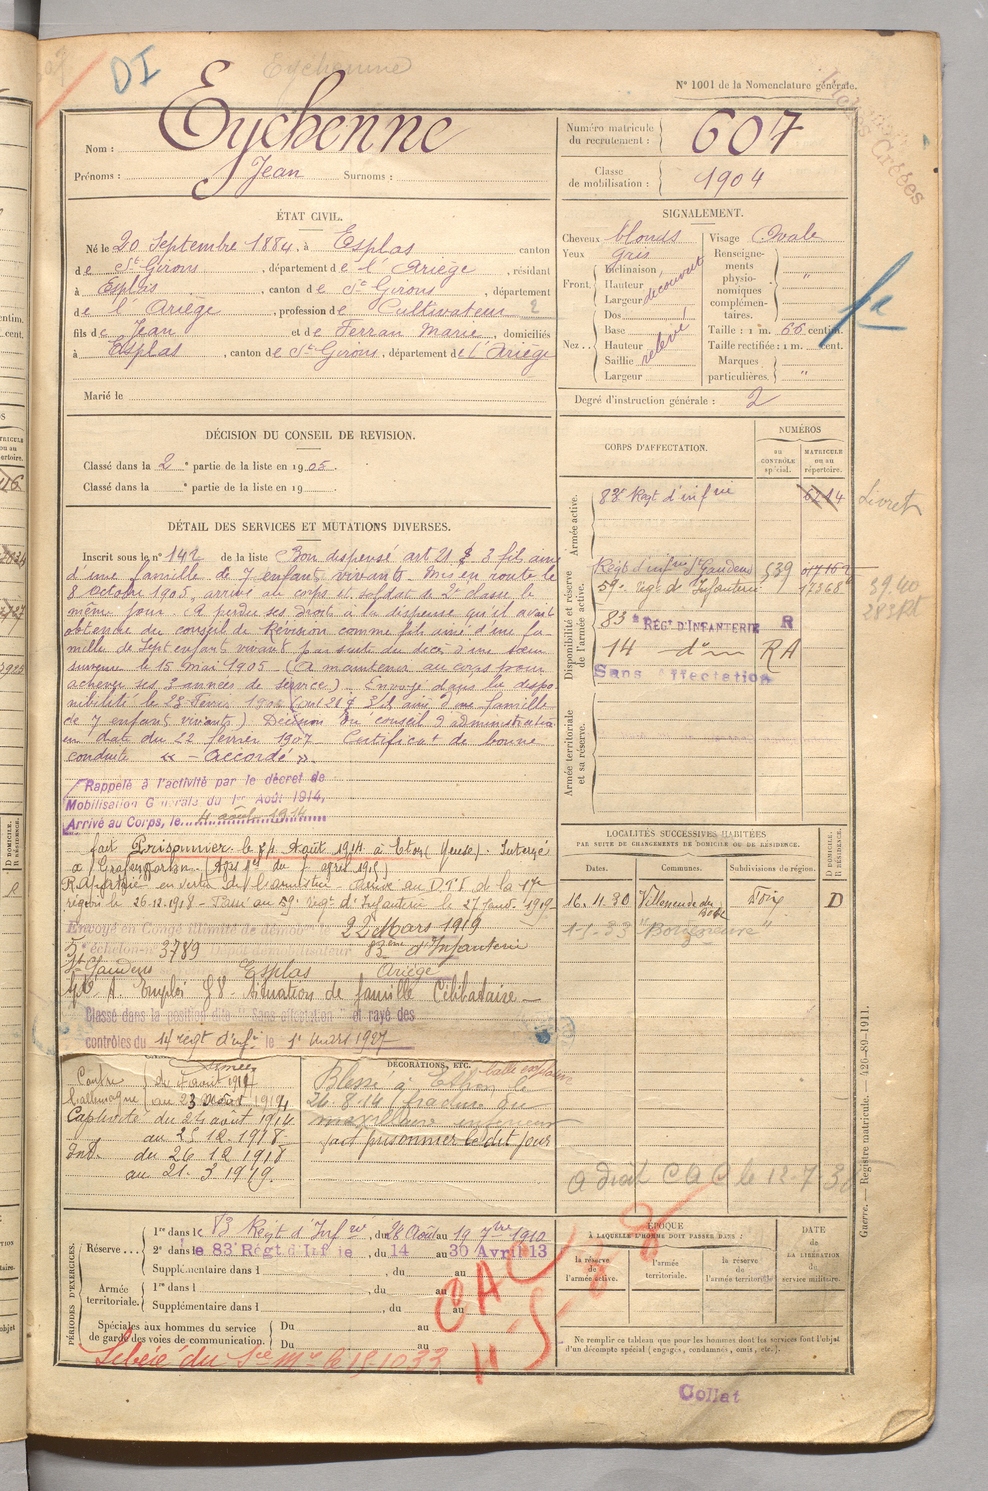 DI
Eychenne
N° 1001 de la Nomenclature générale.
Nom : Eychenne
Prénoms : Jean Surnoms :
Numéro matricule du recrutement : 607
Classe de mobilisation : 1904
ÉTAT CIVIL.
Né le 20 Septembre 1884, à Esplas canton
de St Girons, département de l'Ariège, résidant
à Esplas, canton de St Girons, département
de l'Ariège, profession de Cultivateur 2
fils de Jean et de Ferran Marie, domiciliés
à Esplas, canton de St Girons, département de l'Ariège
Marié le
SIGNALEMENT.
Cheveux blonds
Yeux gris
Front. Inclinaison
Hauteur
Largeur découvert
Nez.. Dos
Base
Hauteur
Saillie relevé
Largeur
Visage Ovale
Renseignements physionomiques complémentaires. "
Taille : 1 m. 66 centim.
Taille rectifiée : 1 m. cent.
Marques particulières. "
Degré d'instruction générale : 2
DÉCISION DU CONSEIL DE REVISION.
Classé dans la 2e partie de la liste en 1905.
Classé dans la e partie de la liste en 19
CORPS D'AFFECTATION.
NUMÉROS
au CONTRÔLE spécial.
MATRICULE ou au répertoire.
Armée active.
83e Regt d'infrie 6214
Livret
Disponibilité et réserve de l'armée active.
Régt d'infrie St Gaudens 539
59e régt d'Infanterie 17368
83e RÉGt D'INFANTERIE R
14 d° RA
Sans affectation
Armée territoriale et sa réserve.
DÉTAIL DES SERVICES ET MUTATIONS DIVERSES.
Inscrit sous le n° 142 de la liste Bon dispensé art 21 § 3 fils ainé
d'une famille de 7 enfants vivants. Mis en route le
8 octobre 1905, arrivé au corps et soldat de 2e classe le
même jour. A perdu ses droits à la dispense qu'il avait
obtenue du conseil de Révision comme fils ainé d'une fa-
mille de Sept enfants vivants par suite du décès d'une soeur
survenu le 15 Mai 1905 (A maintenir au corps pour
achever ses 3 années de service). Envoyé dans la dispo-
nibilité le 23 Février (art 21 § 3 fils ainé d'une famille
de 7 enfants vivants) Décision du conseil d'administration
en date du 22 février 1907 Certificat de bonne
conduite « - Accordé ».
Rappelé à l'activité par le décret de
Mobilisation Générale du 1er Août 1914,
Arrivé au Corps, le 4 août 1914
fait Prisonnier le 24 Août 1914 à Eton (Meuse). Interné
à Grafenwohr (
Rapatrié en vertu de l'armistice - arrivé au D.T.I de la 17e
région le 26.12.1918 - Passé au 59e régt d'Infanterie le 27 janv. 1919
Envoyé en Congé illimité de démob. le 22 Mars 1919
5e échelon n° 3789 83ème d'Infanterie
St Gaudens Esplas Ariège
A. Emploi § 8 - Situation de famille Célibataire -
Classé dans la position dite "Sans affectation" et rayé des
contrôles du 14 régt d'infie le 1r mars 1927
LOCALITÉS SUCCESSIVES HABITÉES
PAR SUITE DE CHANGEMENTS DE DOMICILE OU DE RÉSIDENCE.
Dates. Communes. Subdivisions de région. D DOMICILE. R RÉSIDENCE.
16.11.30 Villeneuve du Bosc Foix D
"
Contre l'allemagne du 4 août 1914
au 23 Août 1914
Captivité du 24 août 1914
au 25.12.1918
Int. du 26 12 1918
au 21.3.1919.
DÉCORATIONS, ETC.
Blessé à Ethon le
24-8-14 fracture du
maxillaire inférieur
fait prisonnier le dit jour
A droit C A C le 12.7.3
PÉRIODES D'EXERCICES.
Réserve... 1re dans le 83 Regt d'Infrie, du 28 Août au 19 7bre 1910
2e dans le 83 Régt d'Infie, du 14 au 30 Avril 13
Supplémentaire dans l , du au
Armée territoriale. 1re dans l , du au
Supplémentaire dans l , du au
Spéciales aux hommes du service de garde des voies de communication. Du au
Du au
Libéré du Sce Mre le 15.10.33
CAC
ÉPOQUE
À LAQUELLE L'HOMME DOIT PASSER DANS :
la réserve de l'armée active.
l'armée territoriale.
la réserve de l'armée territoriale.
DATE DE LA LIBÉRATION du service militaire.
Ne remplir ce tableau que pour les hommes dont les services font l'objet
d'un décompte spécial (engagés, condamnés, omis, etc.).
Guerre. — Registre matricule. — 426-89-1911.
Collat